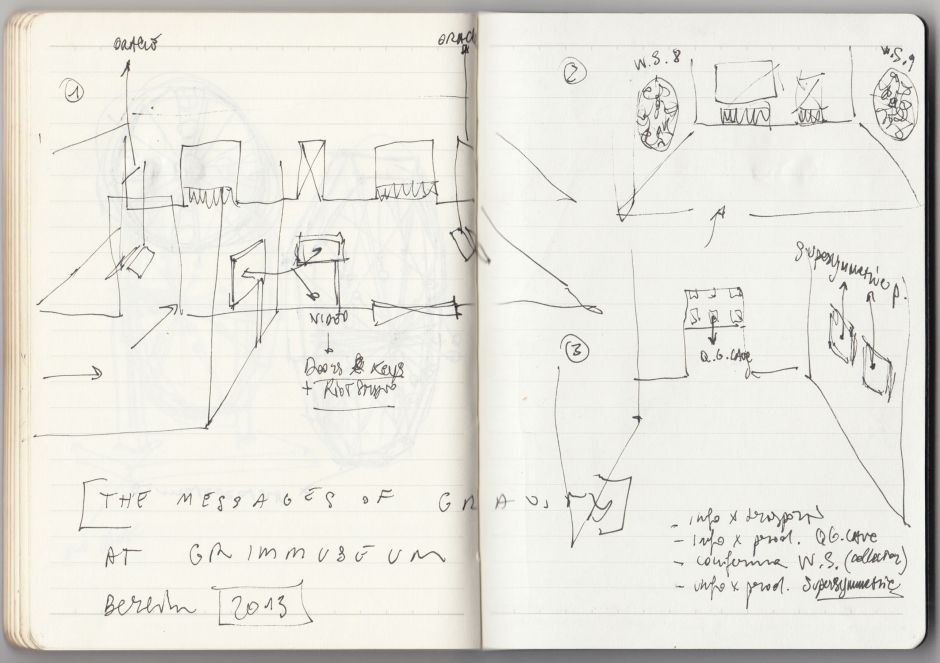 1
VIDEO
Doors & Keys
+ Riot
[THE MESSAGES OF
AT GRIMMUSEUM
Berlin 2013
2
W.S. 8
W.S. 9
3
Q.G. CAVE
Supersymmetric p.
- info x
- info x prod. QG. CAVE
- conferma W.S. (collector)
- info x prod. Supersymmetric